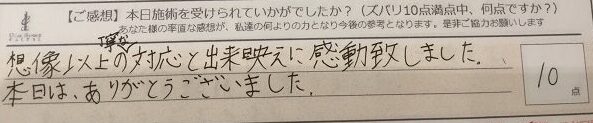 【ご感想】本日施術を受けられていかがでしたか？（ズバリ10点満点中、何点ですか？）
あなた様の率直な感想が、私達の何よりの力となり今後の参考となります。是非ご協力お願いします
想像以上の丁寧な対応と出来映えに感動致しました。
本日は、ありがとうございました。
10
点